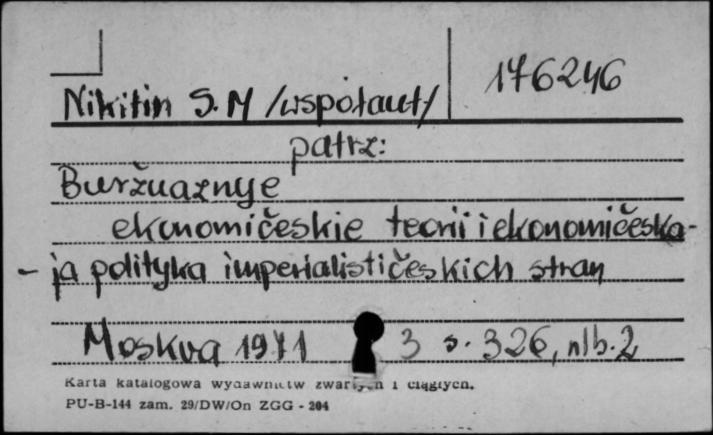 176246
Nikitin S.M /współaut/
patrz:
Buržuaznye
ekonomičeskie teorii i ekonomičeska-
- ja polityka imperialističeskich stran
Moskva 1971 3 s. 326, nlb. 2
Karta katalogowa wydawnictw zwartych i ciągłych.
PU-B-144 zam. 29/DW/On ZGG - 204